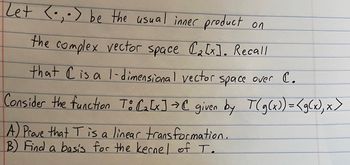 Let <·,·> be the usual inner product on
the complex vector space ℂ₂[x]. Recall
that ℂ is a 1-dimensional vector space over ℂ.
Consider the function T: ℂ₂[x] → ℂ given by T(g(x)) = <g(x), x>
A) Prove that T is a linear transformation.
B) Find a basis for the kernel of T.